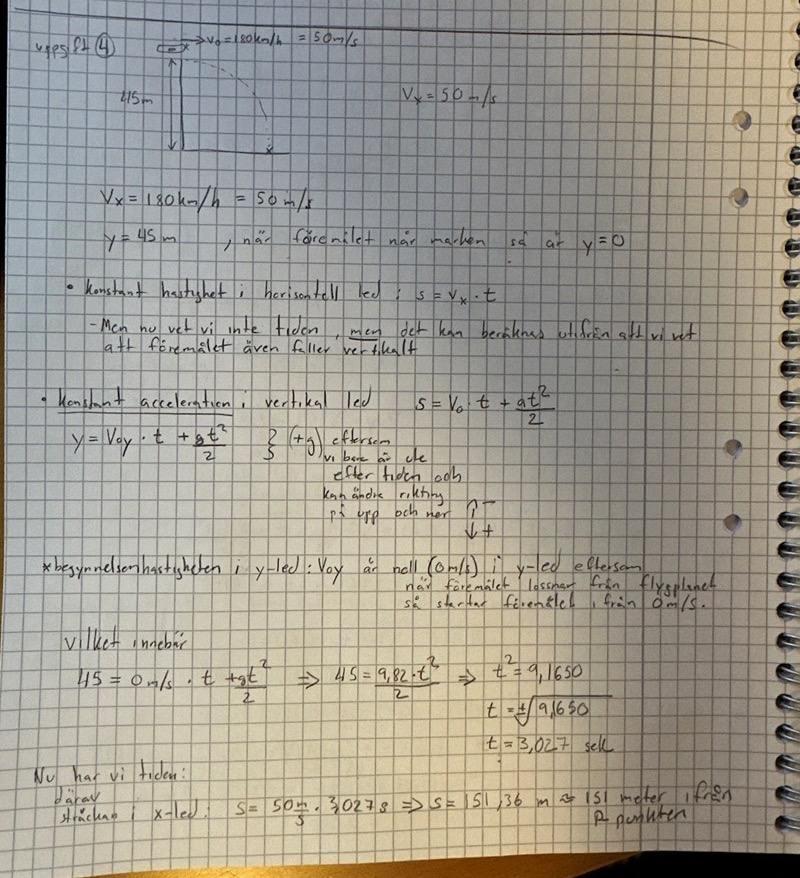 uppgift ④
v₀ = 180km/h = 50m/s
45m
Vₓ = 50 m/s
Vₓ = 180km/h = 50 m/s
y = 45 m , när föremålet når marken så är y = 0
• konstant hastighet i horisontell led : s = vₓ · t
- Men nu vet vi inte tiden, men det kan beräknas utifrån att vi vet
att föremålet även faller vertikalt
• konstant acceleration i vertikal led s = V₀ · t + at²/2
y = V₀y · t + gt²/2 } (+g) eftersom
vi bara är ute
efter tiden och
kan ändra riktning
på upp och ner ↑ − ↓ +
*begynnelsenhastigheten i y-led : V₀y är noll (0m/s) i y-led eftersom
när föremålet lossnar från flygplanet
så startar föremålet ifrån 0m/s.
vilket innebär
45 = 0 m/s · t + gt²/2 ⇒ 45 = 9,82 · t²/2 ⇒ t² = 9,1650
t = ±√9,1650
t = 3,027 sek
Nu har vi tiden:
därav
sträckan i x-led: s = 50 m/s · 3,027 s ⇒ s = 151,36 m ≈ 151 meter ifrån
P punkten